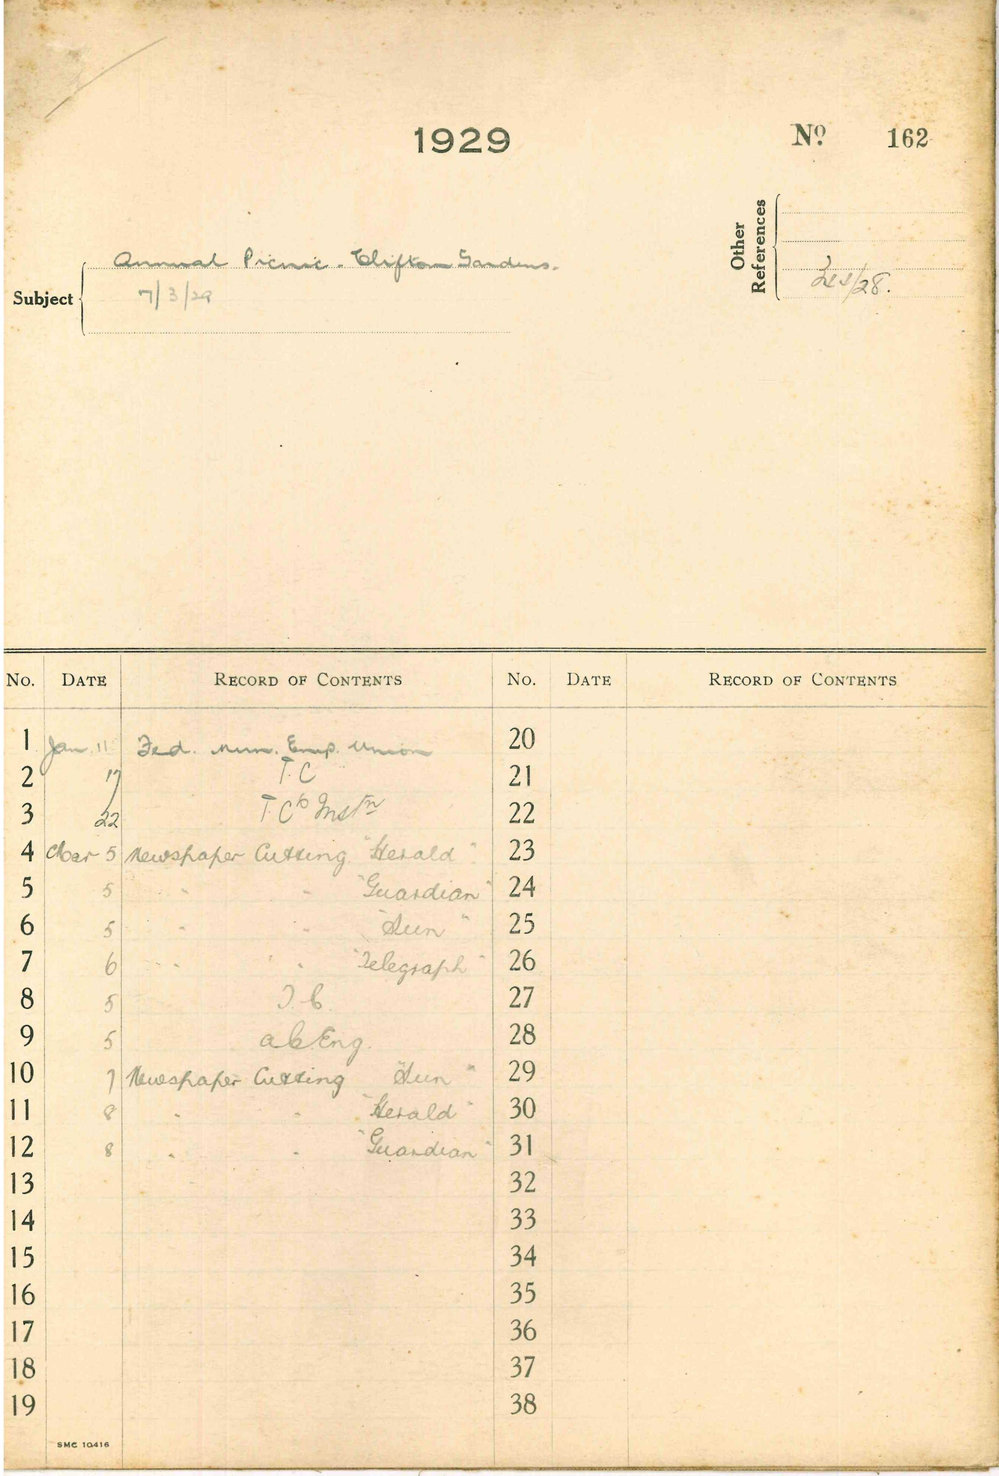 1929
Nº 162
Other References
Subject
Annual Picnic. Clifton Gardens.
7/3/29
/28.
No. DATE RECORD OF CONTENTS No. DATE RECORD OF CONTENTS
1 Jan. 11 Fed. Mun. Emp. Union 20
2 17 T.C 21
3 22 T.C's Instn 22
4 Mar 5 Newspaper Cutting "Herald" 23
5 5 " " "Guardian" 24
6 5 " " "Sun" 25
7 6 " " "Telegraph" 26
8 5 T.C. 27
9 5 a.C.Eng. 28
10 7 Newspaper Cutting "Sun" 29
11 8 " " "Herald" 30
12 8 " " "Guardian" 31
13 32
14 33
15 34
16 35
17 36
18 37
19 38
SMC 10416